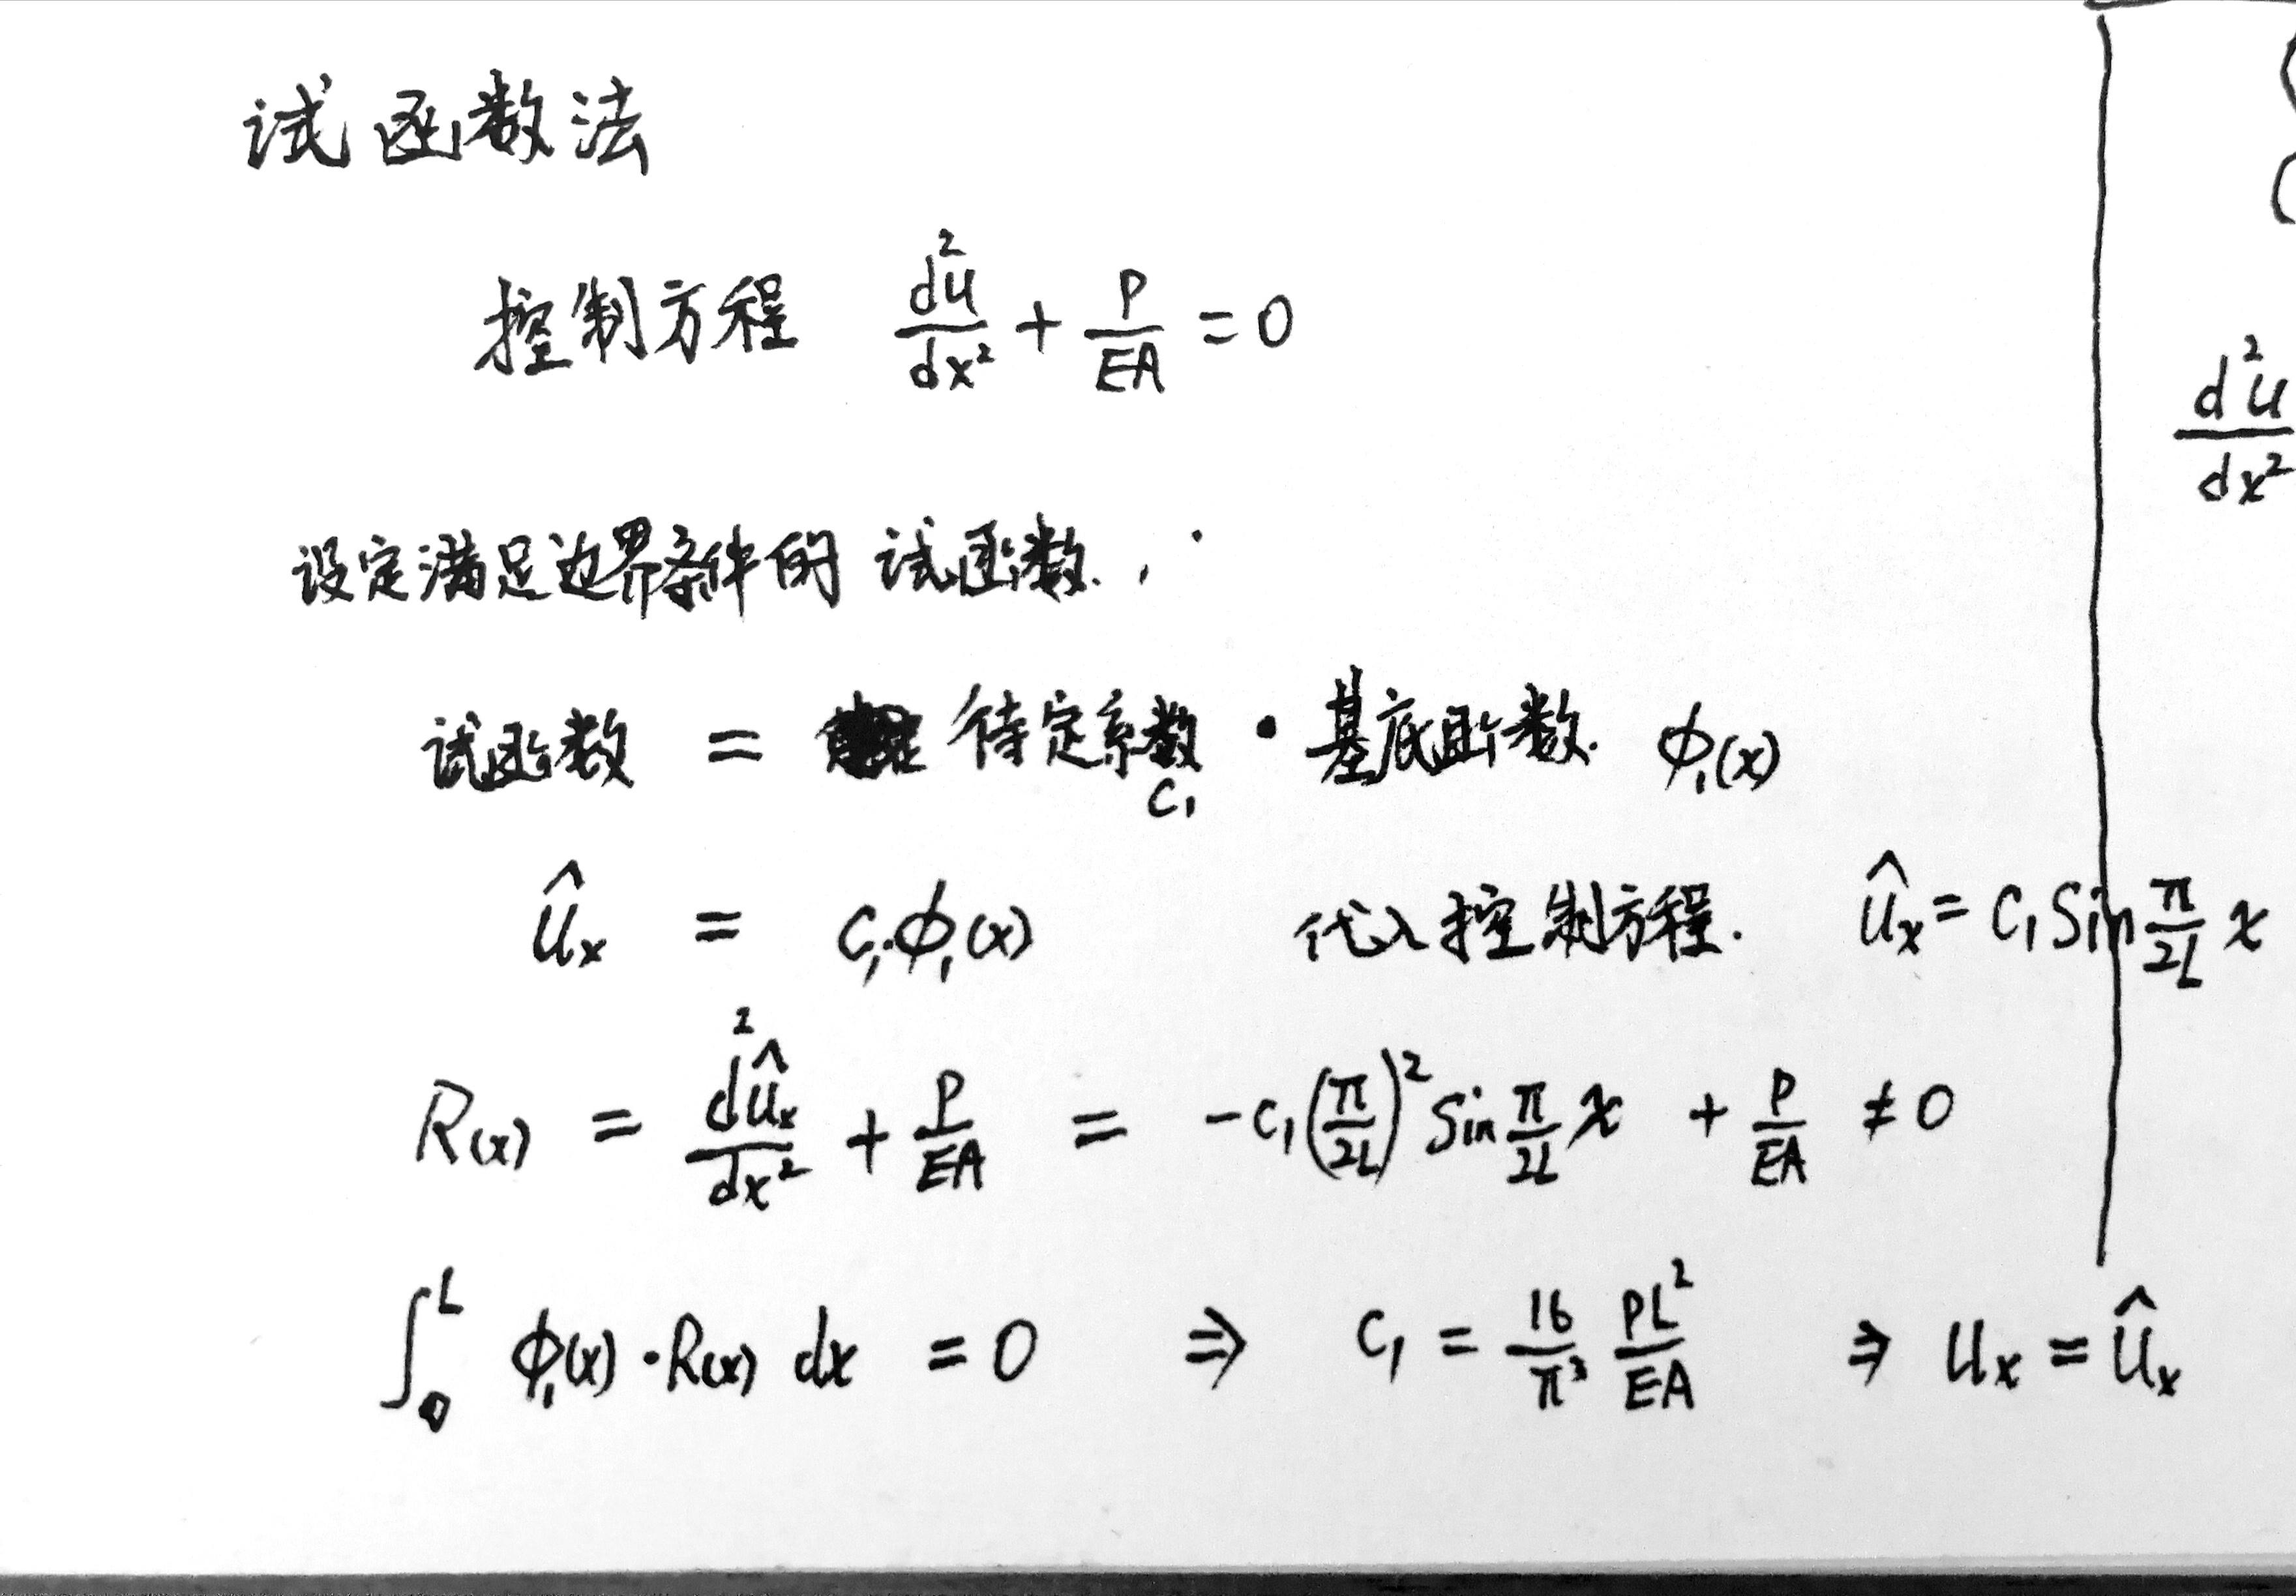 试函数法
控制方程 d²u/dx² + P/EA = 0
设定满足边界条件的 试函数.
试函数 = 待定系数 C₁ · 基底函数. ϕ₁(x)
û_x = C₁·ϕ₁(x) 代入控制方程. û_x = C₁ Sin π/2L x
R(x) = d²û_x/dx² + P/EA = -C₁(π/2L)² Sin π/2L x + P/EA ≠ 0
∫₀ᴸ ϕ₁(x)·R(x) dx = 0 ⇒ C₁ = 16/π³ PL²/EA ⇒ u_x = û_x
d²u/dx²